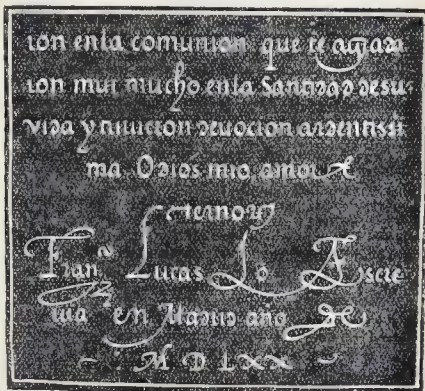 ion enla comunion que te agrada
ron mui mucho enla Santidad desu
vida y tuuieron deuocion ardentissi
ma. O dios mio amor
eterno
Fran.co Lucas Lo Escre
uia en Madrid año De
M D LXX